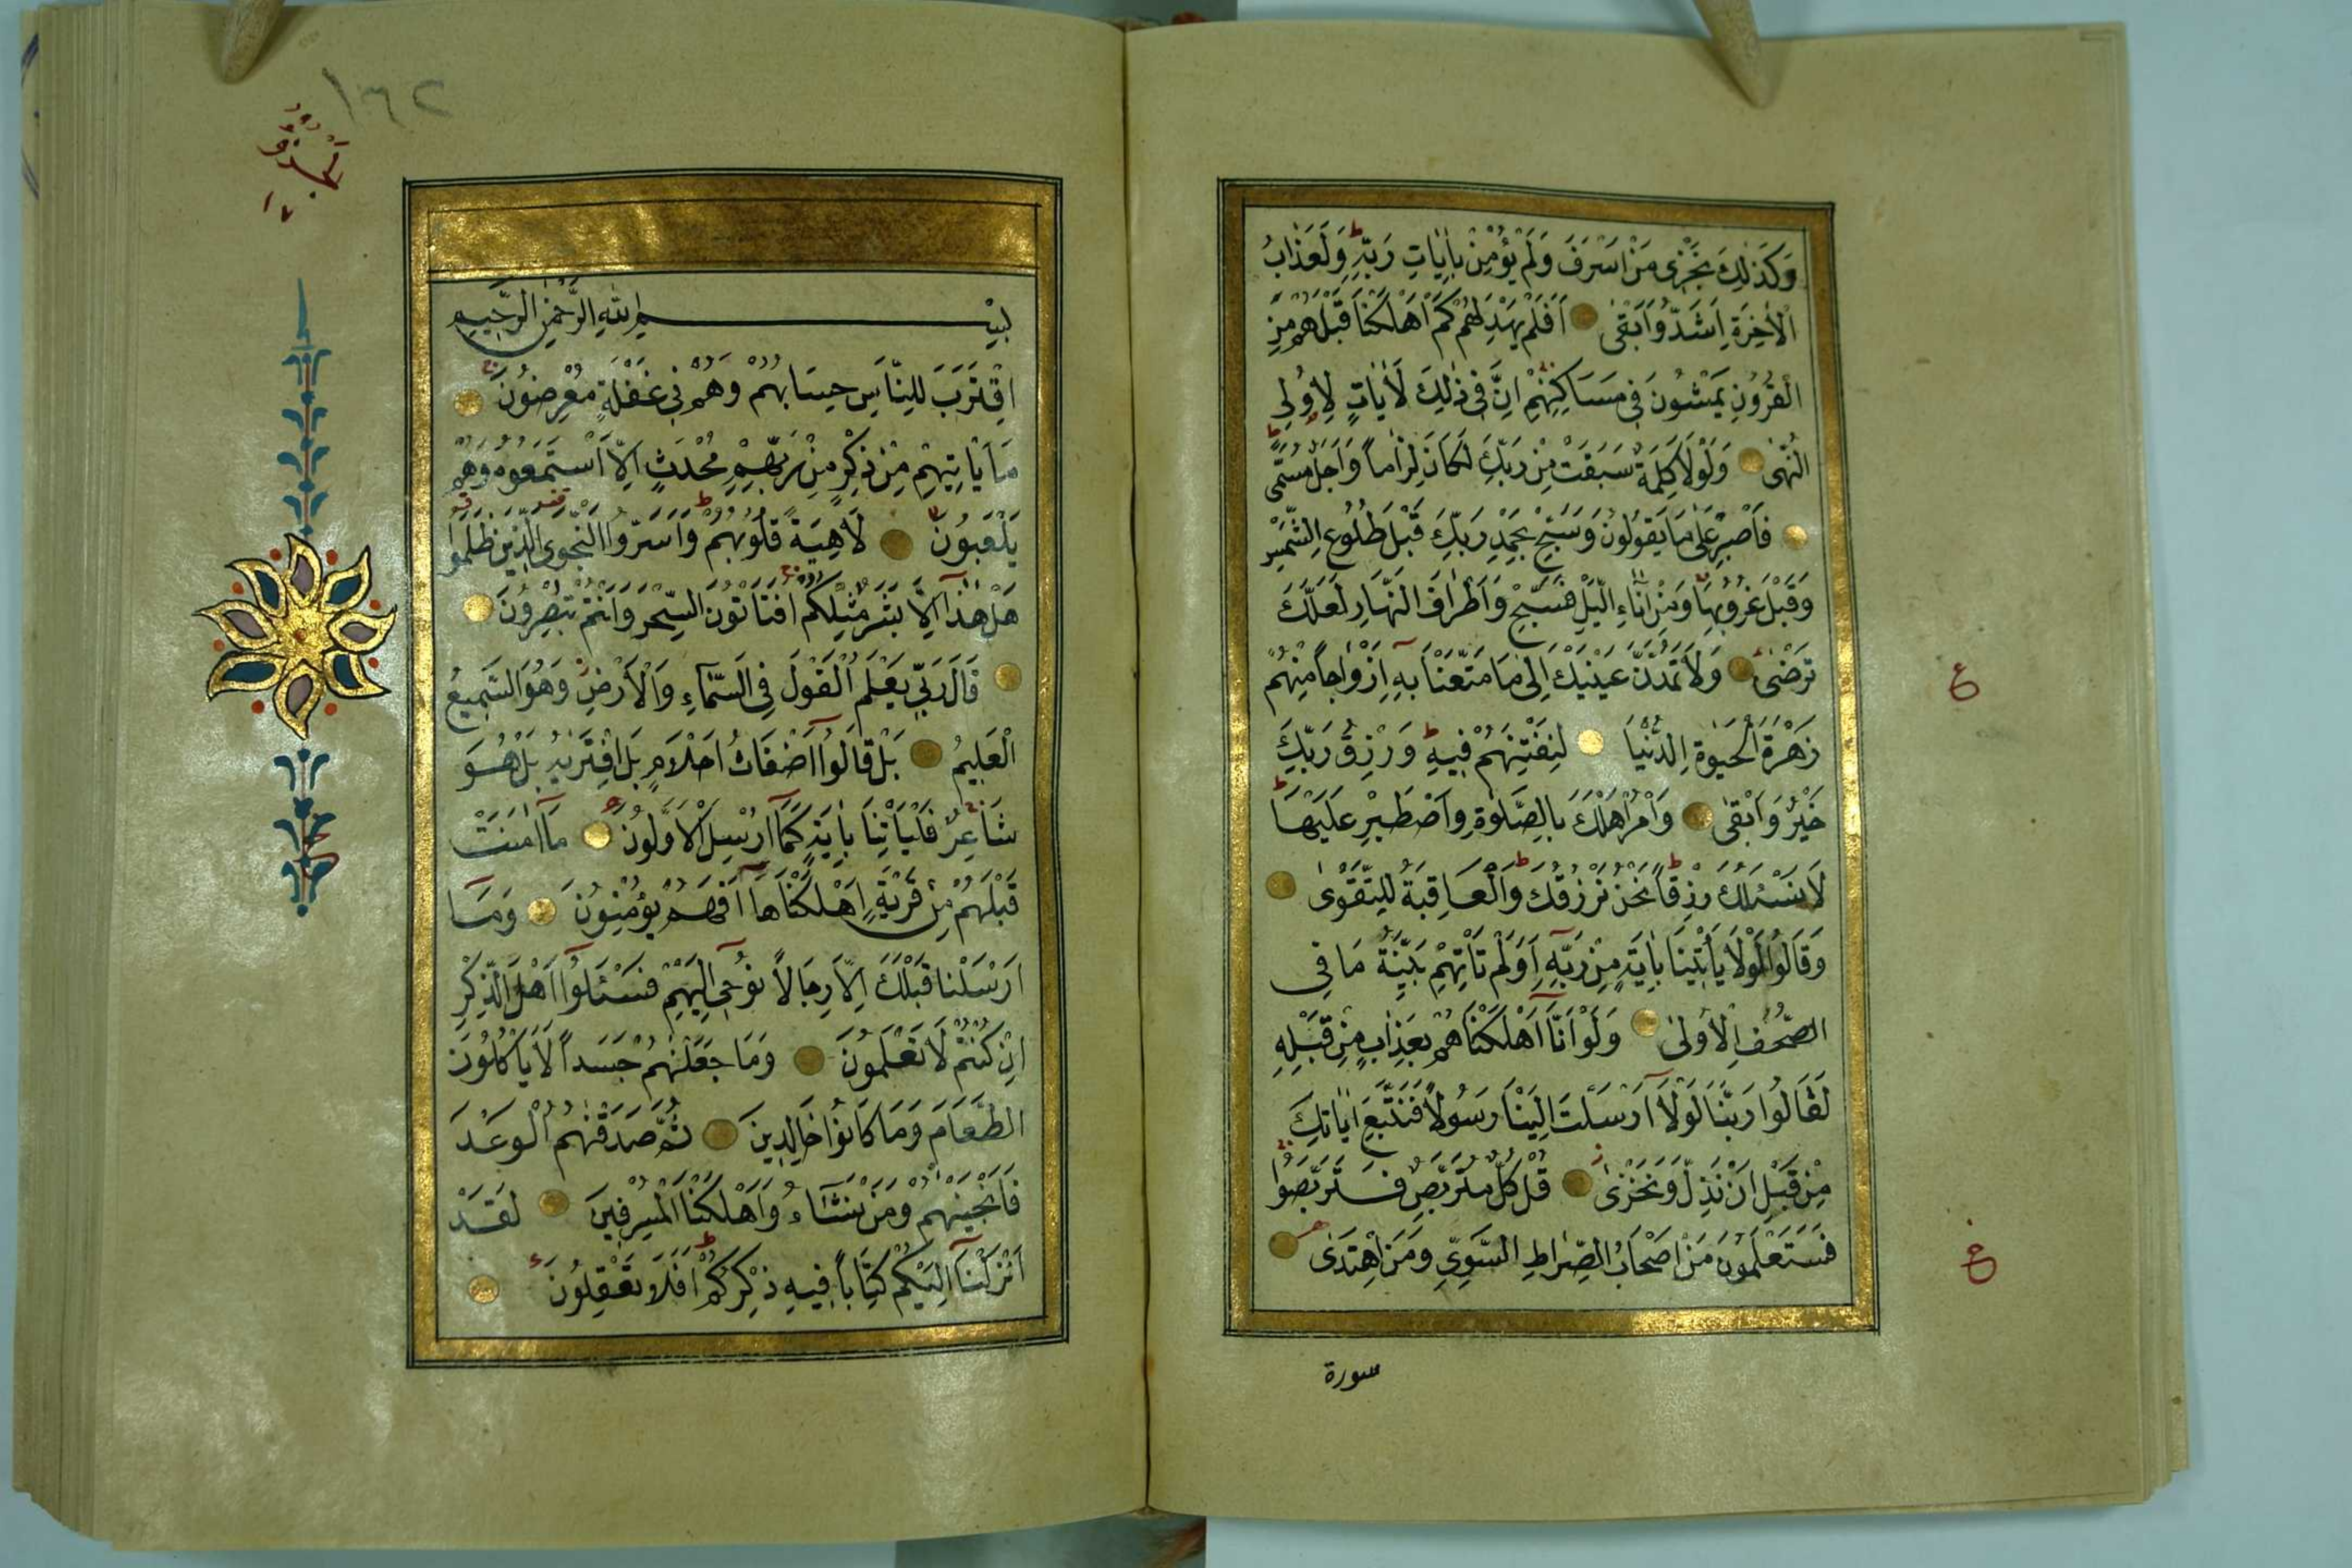 وَكَذٰلِكَ نَجْزِى مَنْ اَسْرَفَ وَلَمْ يُؤْمِنْ بِاٰيَاتِ رَبِّهِ وَلَعَذَابُ
الْاٰخِرَةِ اَشَدُّ وَاَبْقٰى اَفَلَمْ يَهْدِ لَهُمْ كَمْ اَهْلَكْنَا قَبْلَهُمْ مِنَ
الْقُرُونِ يَمْشُونَ فِى مَسَاكِنِهِمْ اِنَّ فِى ذٰلِكَ لَاٰيَاتٍ لِاُولِى
النُّهٰى وَلَوْلَا كَلِمَةٌ سَبَقَتْ مِنْ رَبِّكَ لَكَانَ لِزَاماً وَاَجَلٌ مُسَمًّى
فَاصْبِرْ عَلٰى مَا يَقُولُونَ وَسَبِّحْ بِحَمْدِ رَبِّكَ قَبْلَ طُلُوعِ الشَّمْسِ
وَقَبْلَ غُرُوبِهَا وَمِنْ اٰنَاءِ الَّيْلِ فَسَبِّحْ وَاَطْرَافَ النَّهَارِ لَعَلَّكَ
تَرْضٰى وَلَا تَمُدَّنَّ عَيْنَيْكَ اِلٰى مَا مَتَّعْنَا بِهِ اَزْوَاجاً مِنْهُمْ
زَهْرَةَ الْحَيٰوةِ الدُّنْيَا لِنَفْتِنَهُمْ فِيهِ وَرِزْقُ رَبِّكَ
خَيْرٌ وَاَبْقٰى وَاْمُرْ اَهْلَكَ بِالصَّلٰوةِ وَاصْطَبِرْ عَلَيْهَا
لَا نَسْئَلُكَ رِزْقاً نَحْنُ نَرْزُقُكَ وَالْعَاقِبَةُ لِلتَّقْوٰى
وَقَالُوا لَوْلَا يَاْتِينَا بِاٰيَةٍ مِنْ رَبِّهِ اَوَلَمْ تَاْتِهِمْ بَيِّنَةُ مَا فِى
الصُّحُفِ الْاُولٰى وَلَوْ اَنَّا اَهْلَكْنَاهُمْ بِعَذَابٍ مِنْ قَبْلِهِ
لَقَالُوا رَبَّنَا لَوْلَا اَرْسَلْتَ اِلَيْنَا رَسُولاً فَنَتَّبِعَ اٰيَاتِكَ
مِنْ قَبْلِ اَنْ نَذِلَّ وَنَخْزٰى قُلْ كُلٌّ مُتَرَبِّصٌ فَتَرَبَّصُوا
فَسَتَعْلَمُونَ مَنْ اَصْحَابُ الصِّرَاطِ السَّوِىِّ وَمَنِ اهْتَدٰى
سورة
ع
١٦٢
الجزؤ
١٧
بِسْمِ اللّٰهِ الرَّحْمٰنِ الرَّحِيمِ
اِقْتَرَبَ لِلنَّاسِ حِسَابُهُمْ وَهُمْ فِى غَفْلَةٍ مُعْرِضُونَ
مَا يَاْتِيهِمْ مِنْ ذِكْرٍ مِنْ رَبِّهِمْ مُحْدَثٍ اِلَّا اسْتَمَعُوهُ وَهُمْ
يَلْعَبُونَ لَاهِيَةً قُلُوبُهُمْ وَاَسَرُّوا النَّجْوَى الَّذِينَ ظَلَمُوا
هَلْ هٰذَا اِلَّا بَشَرٌ مِثْلُكُمْ اَفَتَاْتُونَ السِّحْرَ وَاَنْتُمْ تُبْصِرُونَ
قَالَ رَبِّى يَعْلَمُ الْقَوْلَ فِى السَّمَاءِ وَالْاَرْضِ وَهُوَ السَّمِيعُ
الْعَلِيمُ بَلْ قَالُوا اَضْغَاثُ اَحْلَامٍ بَلِ افْتَرٰيهُ بَلْ هُوَ
شَاعِرٌ فَلْيَاْتِنَا بِاٰيَةٍ كَمَا اُرْسِلَ الْاَوَّلُونَ مَا اٰمَنَتْ
قَبْلَهُمْ مِنْ قَرْيَةٍ اَهْلَكْنَاهَا اَفَهُمْ يُؤْمِنُونَ وَمَا
اَرْسَلْنَا قَبْلَكَ اِلَّا رِجَالاً نُوحِى اِلَيْهِمْ فَسْئَلُوا اَهْلَ الذِّكْرِ
اِنْ كُنْتُمْ لَا تَعْلَمُونَ وَمَا جَعَلْنٰهُمْ جَسَداً لَا يَاْكُلُونَ
الطَّعَامَ وَمَا كَانُوا خَالِدِينَ ثُمَّ صَدَقْنٰهُمُ الْوَعْدَ
فَاَنْجَيْنٰهُمْ وَمَنْ نَشَاءُ وَاَهْلَكْنَا الْمُسْرِفِينَ لَقَدْ
اَنْزَلْنَا اِلَيْكُمْ كِتَاباً فِيهِ ذِكْرُكُمْ اَفَلَا تَعْقِلُونَ